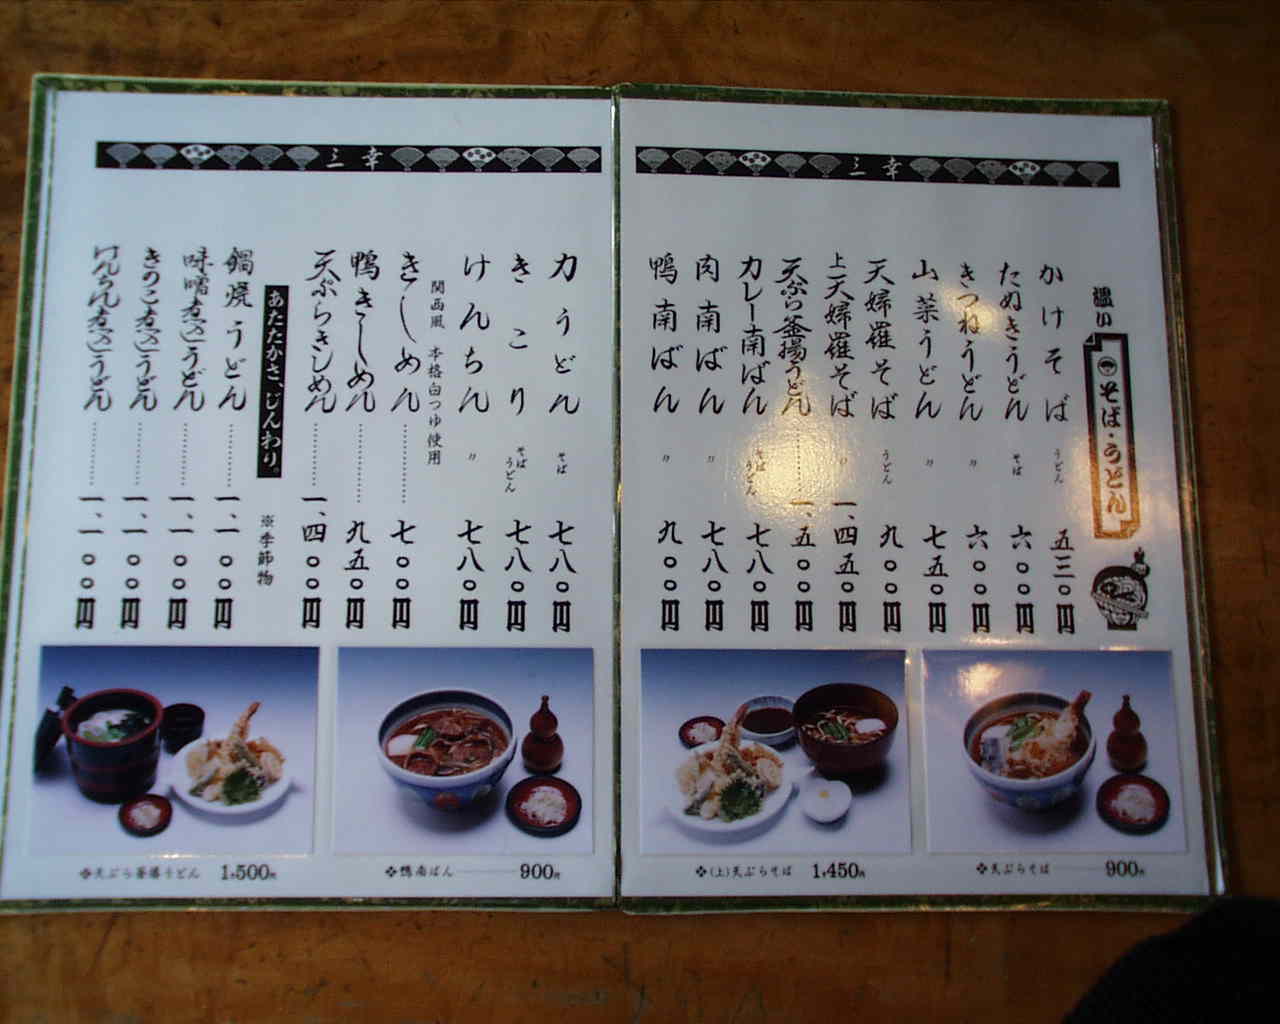 三幸
温い
そば・うどん
かけそば うどん 五三〇円
たぬきうどん そば 六〇〇円
きつねうどん 〃 六〇〇円
山菜うどん 〃 七五〇円
天婦羅そば うどん 九〇〇円
上天婦羅そば 〃 一、四五〇円
天ぷら釜揚うどん 一、五〇〇円
カレー南ばん そば うどん 七八〇円
肉南ばん 〃 七八〇円
鴨南ばん 〃 九〇〇円
❖天ぷらそば 900円
❖(上)天ぷらそば 1,450円
三幸
力うどん そば 七八〇円
きこり そば うどん 七八〇円
けんちん 〃 七八〇円
関西風 本格白つゆ使用
きしめん 七〇〇円
鴨きしめん 九五〇円
天ぷらきしめん 一、四〇〇円
あたたかさ、じんわり。
※季節物
鍋焼うどん 一、一〇〇円
味噌煮込うどん 一、一〇〇円
きのこ煮込うどん 一、一〇〇円
けんちん煮込うどん 一、一〇〇円
❖鴨南ばん 900円
❖天ぷら釜揚うどん 1,500円